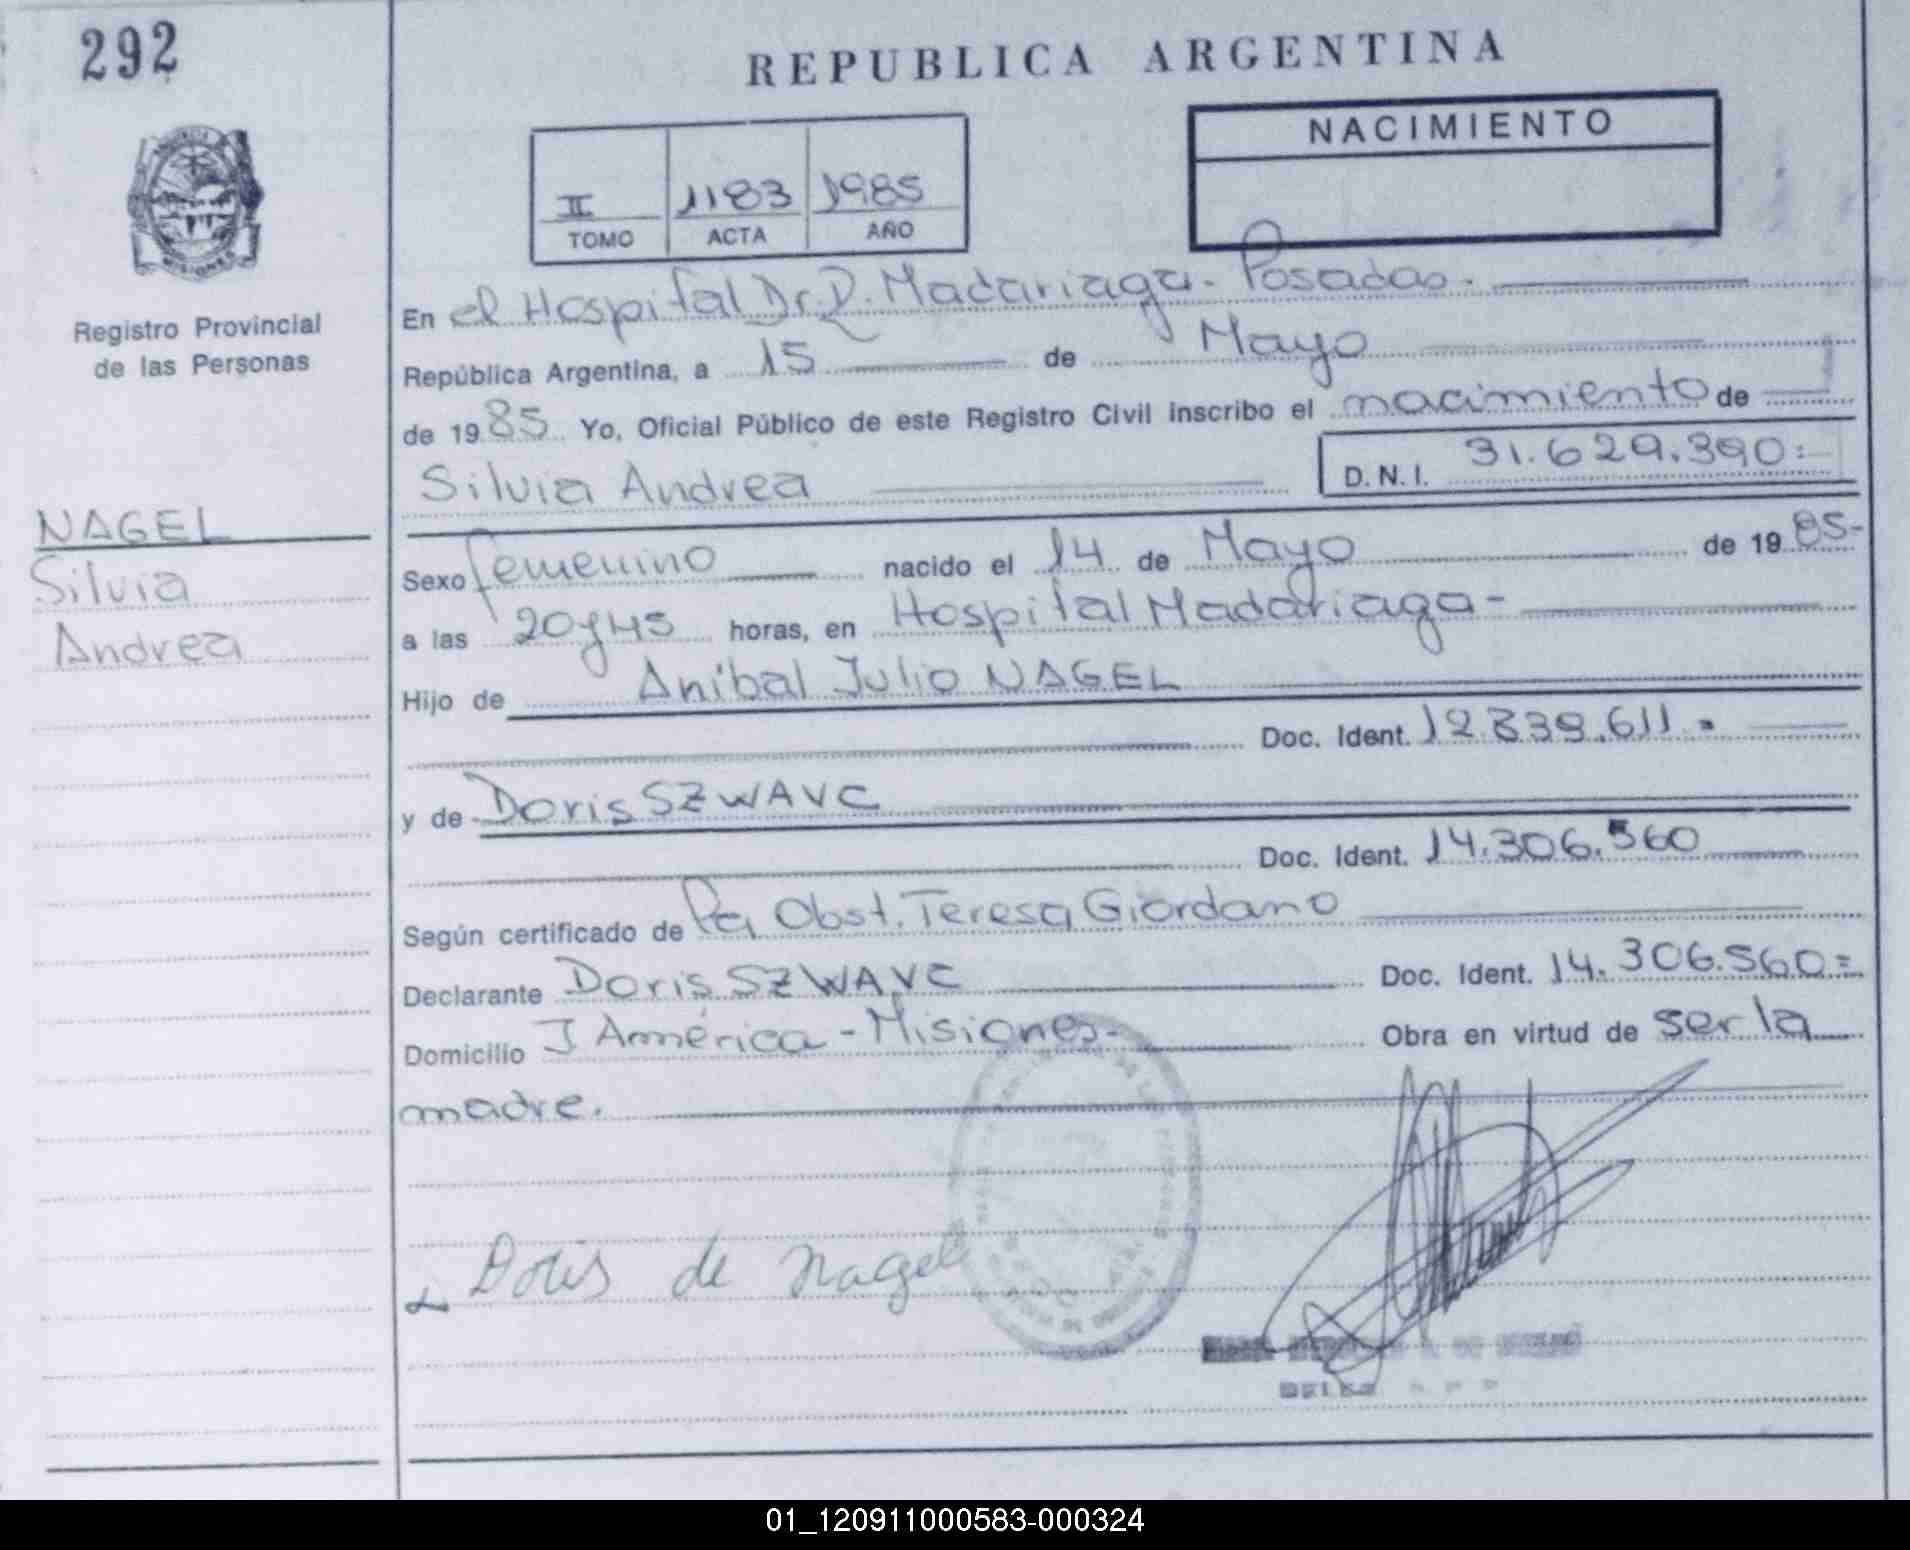 292
REPUBLICA ARGENTINA
NACIMIENTO
II 1183 1985
TOMO ACTA AÑO
MISIONES
Registro Provincial
de las Personas
NAGEL
Silvia
Andrea
En el Hospital Dr. R. Madariaga - Posadas -
República Argentina, a 15 de Mayo
de 1985 Yo, Oficial Público de este Registro Civil inscribo el nacimiento de
Silvia Andrea D.N.I. 31.629.390=
Sexo femenino nacido el 14 de Mayo de 1985-
a las 20 y 45 horas, en Hospital Madariaga -
Hijo de Anibal Julio NAGEL
Doc. Ident. 12.839.611.=
y de Doris SZWAVC
Doc. Ident. 14.306.560
Según certificado de la Obst. Teresa Giordano
Declarante Doris SZWAVC Doc. Ident. 14.306.560=
Domicilio J América - Misiones - Obra en virtud de ser la
madre.
Doris de Nagel
01_120911000583-000324